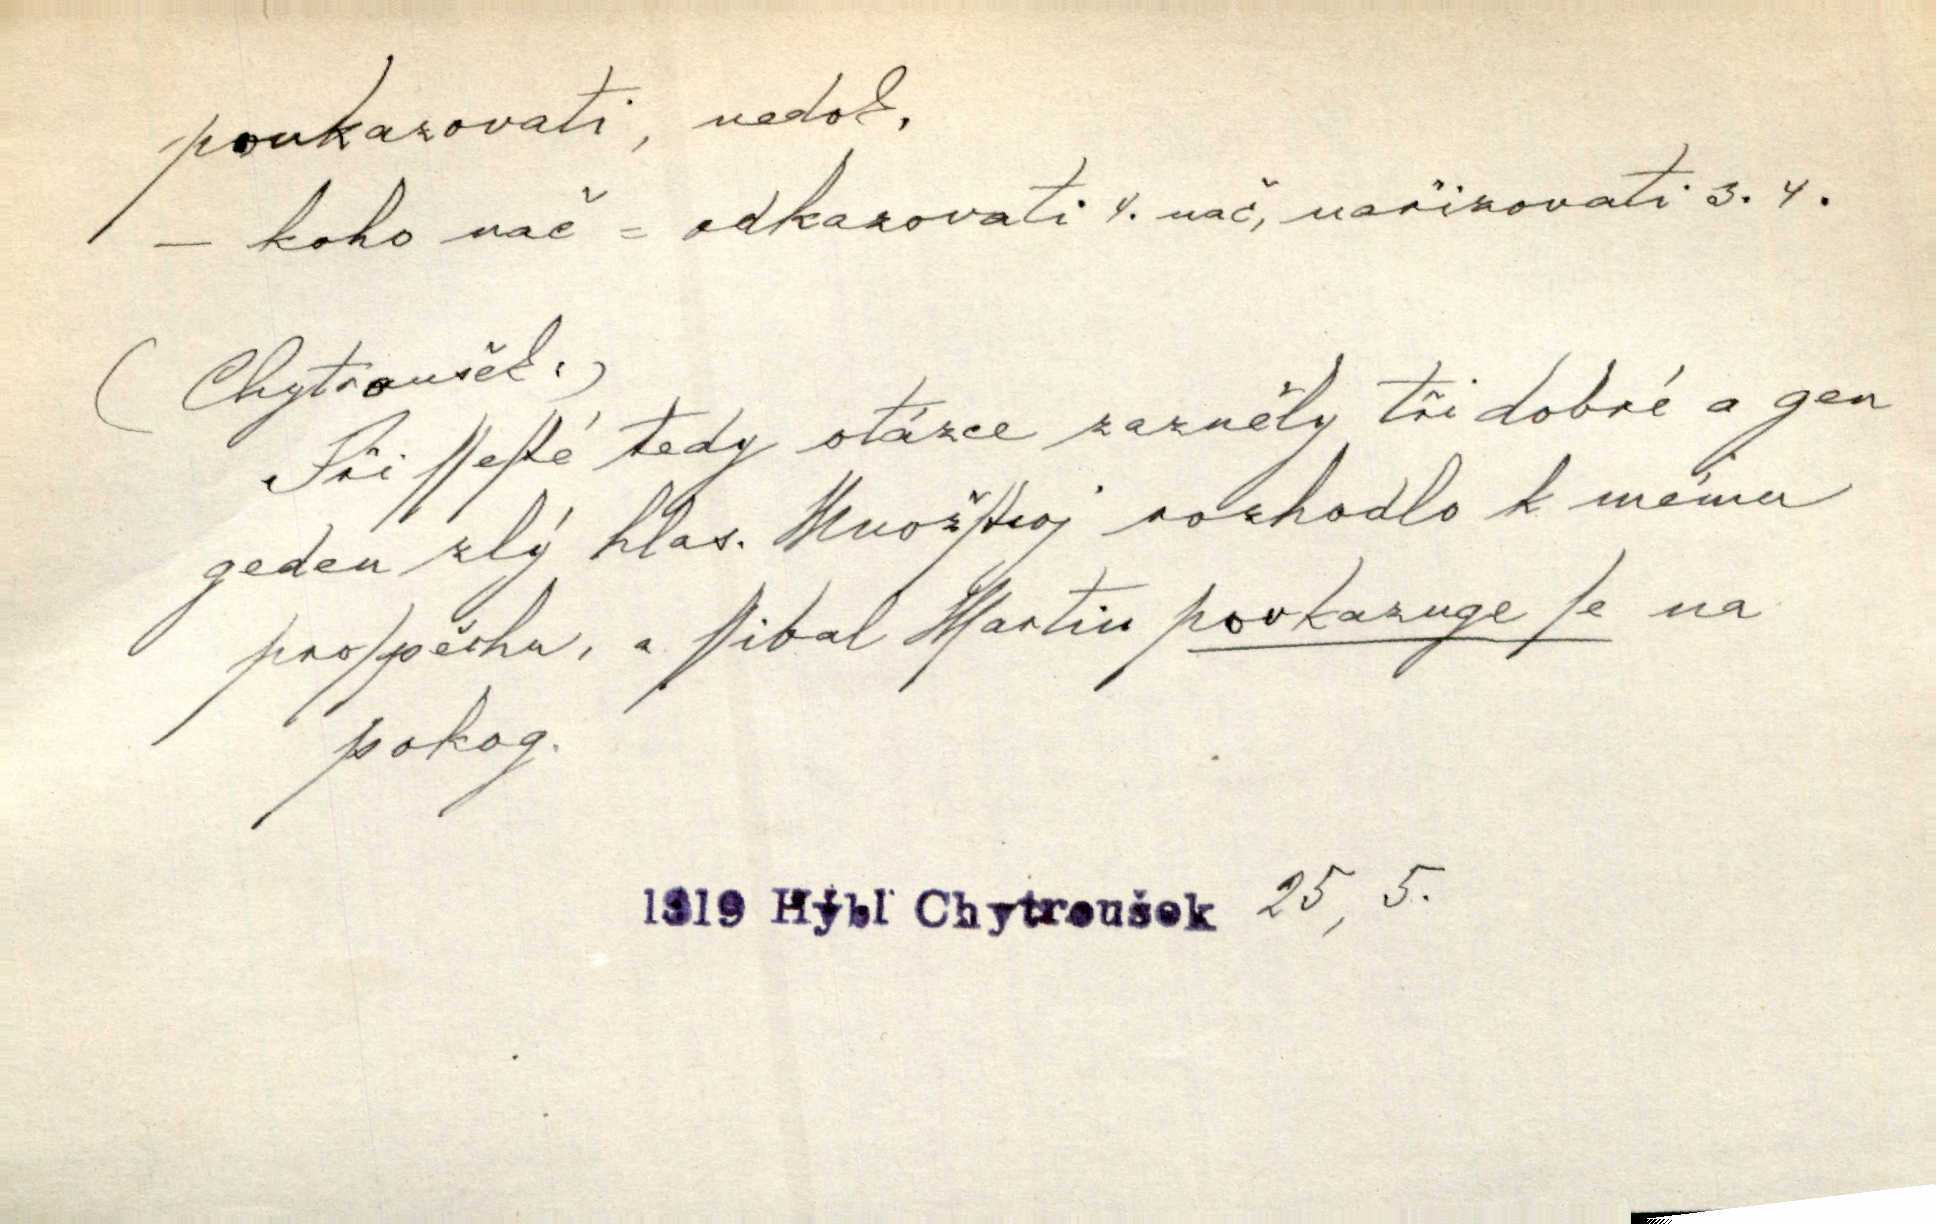 poukazovati, nedok.
— koho nač = odkazovati 4. nač, nařizovati 3. 4.
(Chytroušek.)
Při ſſeſté tedy otázce zazněly tři dobré a gen
geden zlý hlas. Množſtwj rozhodlo k mému
proſpěchu, a ſſibal Martin poukazuge ſe na
pokog.
1819 Hýbl Chytroušek 25, 5.